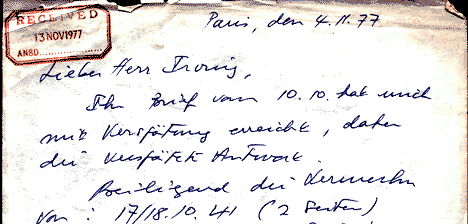 Paris, den 4.11.77
RECEIVED
13 NOV 1977
ANSD
Lieber Herr Irving,
Ihr Brief vom 10.10. hat mich
mit Verspätung erreicht, daher
die verspätete Antwort.
Beiliegend die Vermerke
von: 17/18.10.41 (2 Seiten)